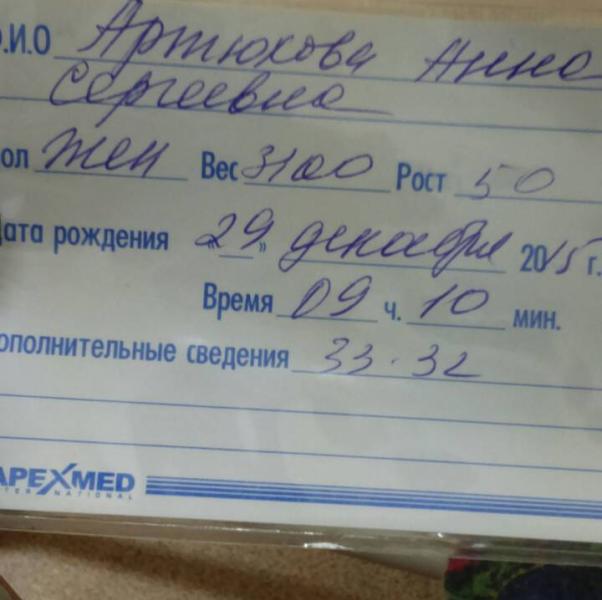 Ф.И.О Артюхова Анна
Сергеевна
Пол Жен Вес 3100 Рост 50
Дата рождения «29» декабря 2015 г.
Время 09 ч. 10 мин.
Дополнительные сведения 33-32
APEXMED
INTERNATIONAL